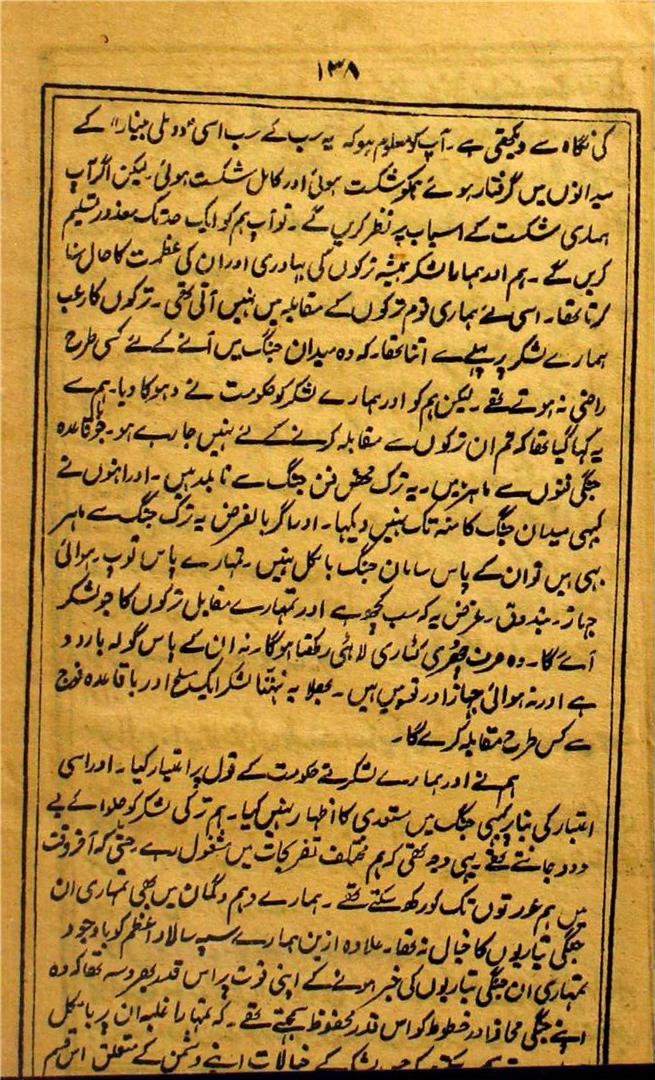 ۱۳۸
کی نگاہ سے دیکھتی ہے۔ آپ کو معلوم ہو کہ یہ سب کے سب اسی "دوملی بینار" کے
میدانوں میں گرفتار ہوئے ہمکو شکست ہوئی اور کامل شکست ہوئی۔ لیکن اگر آپ
ہماری شکست کے اسباب پر نظر کریں گے۔ تو آپ ہم کو ایک حد تک معذور تسلیم
کریں گے۔ ہم اور ہمارا لشکر ہمیشہ ترکوں کی بہادری اور ان کی عظمت کا حال سنا
کرتا تھا۔ اسی لئے ہماری قوم ترکوں کے مقابلہ میں نہیں آتی تھی۔ ترکوں کا رعب
ہمارے لشکر پر پہلے سے اتنا تھا۔ کہ وہ میدان جنگ میں آنے کے لئے کسی طرح
راضی نہ ہوتے تھے۔ لیکن ہم کو اور ہمارے لشکر کو حکومت نے دہوکا دیا۔ ہم سے
یہ کہا گیا تھا کہ تم ان ترکوں سے مقابلہ کرنے کے لئے نہیں جا رہے ہو۔ جو باقاعدہ
جنگی فنون سے ماہر ہیں۔ یہ ترک محض فن جنگ سے نابلد ہیں۔ اور انہوں نے
کبہی میدان جنگ کا منہ تک نہیں دیکہا۔ اور اگر بالفرض یہ ترک جنگ سے ماہر
بہی ہیں تو ان کے پاس سامان جنگ بالکل نہیں۔ تمہارے پاس توپ۔ ہوائی
جہاز۔ بندوق۔ غرض یہ کہ سب کچھ ہے اور تمہارے مقابل ترکوں کا جو لشکر
آئے گا۔ وہ صرف چھری کٹاری لاٹہی رکھتا ہوگا۔ نہ ان کے پاس گولہ بارود
ہے اور نہ ہوائی جہاز اور توپیں ہیں۔ بھلا یہ نہتا لشکر ایک مسلح اور باقاعدہ فوج
سے کس طرح مقابلہ کرے گا۔
ہم نے اور ہمارے لشکر نے حکومت کے قول پر اعتبار کیا۔ اور اسی
اعتبار کی بنا پر کبہی جنگ میں مستعدی کا اظہار نہیں کیا۔ ہم ترکی لشکر کو حلوائے بے
دود جانتے تھے۔ یہی وجہ تھی کہ ہم مختلف تفریحات میں مشغول رہے۔ حتیٰ کہ آخر وقت
میں ہم عورتوں تک کو رکھ سکتے تھے۔ ہمارے وہم وگمان میں بھی تمہاری ان
جنگی تیاریوں کا خیال نہ تھا۔ علاوہ ازین ہمارے سپہ سالار اعظم کو باوجود
تمہاری ان جنگی تیاریوں کی خبر ہونے کے اپنی قوت پر اس قدر بھروسہ تھا کہ وہ
اپنے جنگی محاذ اور خطوط کو اس قدر محفوظ سمجتے تھے۔ کہ تمہارا غلبہ ان پر بالکل
خیالات اپنے دشمن کے متعلق اس قسم